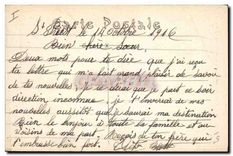 Carte Postale
le 14 Octobre 1916
Bien chère Sœur,
Deux mots pour te dire que j'ai reçu
ta lettre qui m'a fait grand plaisir de savoir
de tes nouvelles je te dirai que je part ce soir
direction inconnue je t'enverrai de mes
nouvelles aussitôt que je saurai ma destination
Bien le bonjour à toute la famille et aux
voisins de ma part Reçois de ton frère qui
t'embrasse bien fort